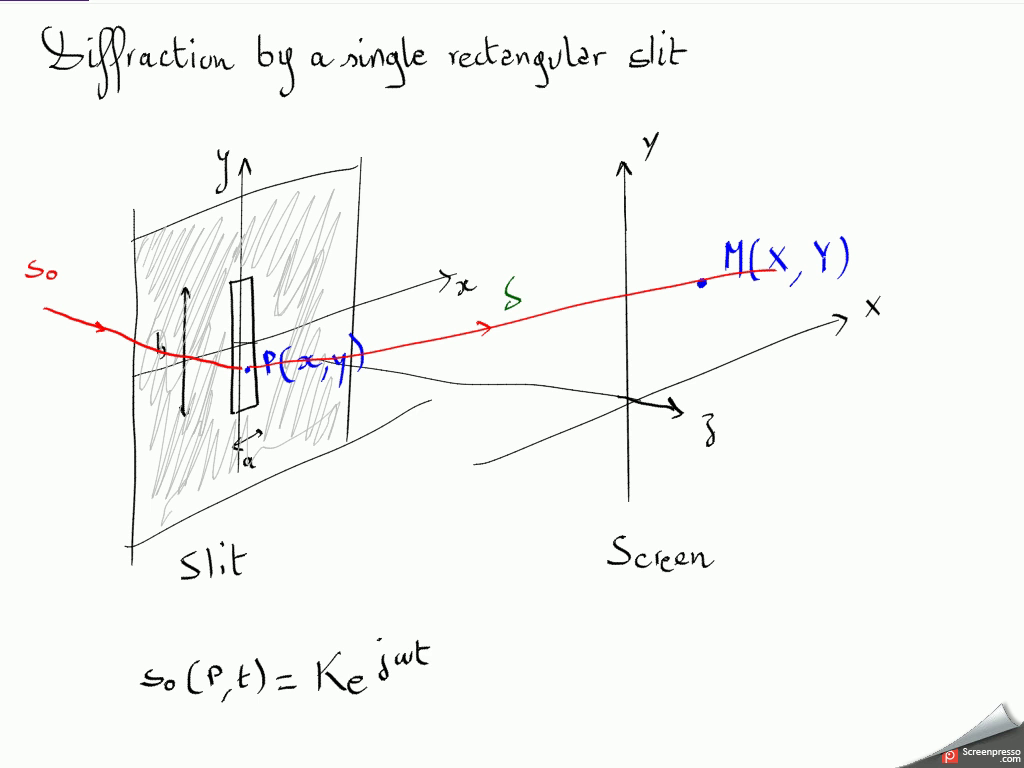 Diffraction by a single rectangular slit
y
Y
s₀
x
S
M(X, Y)
X
b
P(x,y)
z
a
Slit
Screen
s₀(P,t) = K e^{jωt}
Screenpresso
.com